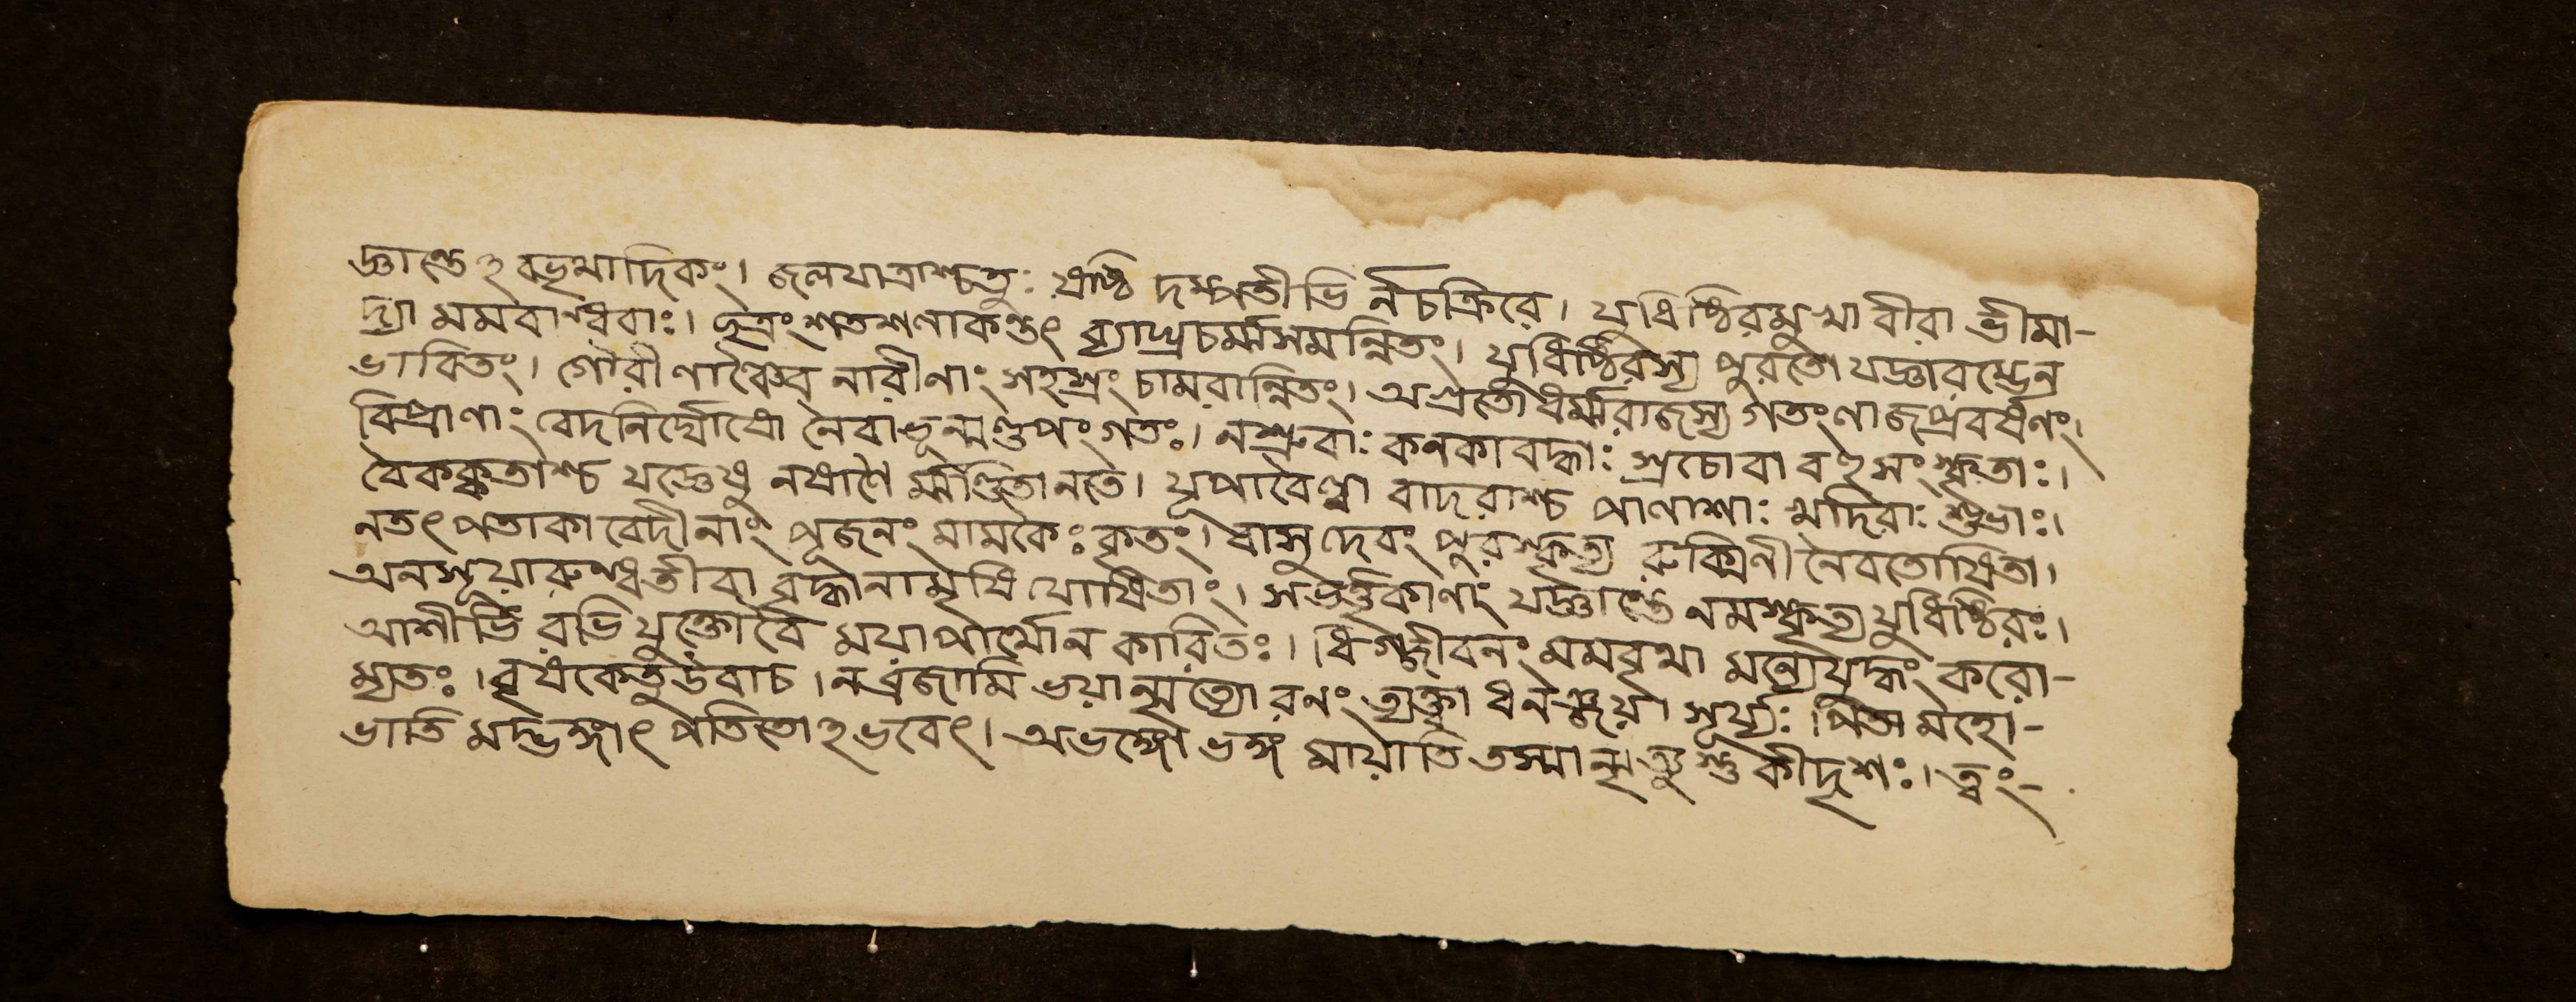 জ্ঞান্তেঽবভৃথাদিকং। জলযাত্রাশ্চতুঃ ষষ্ঠি দম্পতীভি র্নচক্রিরে। যুধিষ্ঠিরমুখা বীরা ভীমা-
দ্যা মমবান্ধবাঃ। ছত্রং শতশলাকন্তৎ ব্যাঘ্রচর্ম্মসমন্নিতং। যুধিষ্ঠিরস্য পুরতো যজ্ঞারম্ভেন
ভাবিতং। গৌরীণাঞ্চৈব নারীণাং সহস্রং চামরান্নিতং। অগ্রতো ধর্ম্মরাজস্য গতংলাজপ্রবর্ষণং।
বিপ্রাণাং বেদনির্ঘোষো নৈবাভূন্মণ্ডপং গতঃ। নশ্রুবাঃ কনকাবদ্ধাঃ স্রচোবা বহুসংস্কৃতাঃ।
বৈকঙ্কতাশ্চ যজ্ঞেষু নষালৈ র্ম্মণ্ডিতানতে। যূপাবৈল্বা বাদরাশ্চ পালাশাঃ খাদিরাঃ শুভাঃ।
নতৎ পতাকা বেদীনাং পূজনং মামকৈঃ কৃতং। বাসুদেবং পুরস্কৃত্য রুক্মিনী নৈবতোষিতা।
অনসূয়ারুন্ধতীবা বৃদ্ধানামৃষি যোষিতাং। সভর্ত্তৃকাণাং যজ্ঞান্তে নমস্কৃত্য যুধিষ্ঠিরঃ।
আশীর্ভি রভিযুক্তো বৈ ময়াপার্থোন কারিতঃ। ধিগ্জীবনং মমবৃথা মন্যেযুদ্ধং করো-
ম্যতঃ। বৃষকেতুরুবাচ। নব্রজামি ভয়ান্মৃত্যো রনং ত্যক্ত্বা ধনঞ্জয়। সূর্য্যঃ পিতামহো-
ভাতি মদ্ভঙ্গাৎ পতিতোঽভবেৎ। অভঙ্গো ভঙ্গ মায়াতি তস্মান্মৃত্যুশ্চ কীদৃশঃ। ত্বং-